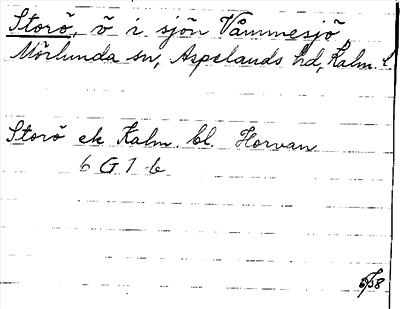 Storö, ö i sjön Våmmesjö
Mörlunda sn, Aspelands hd, Kalm. l
Storö ek Kalm. bl. Horvan
6 G 7 b